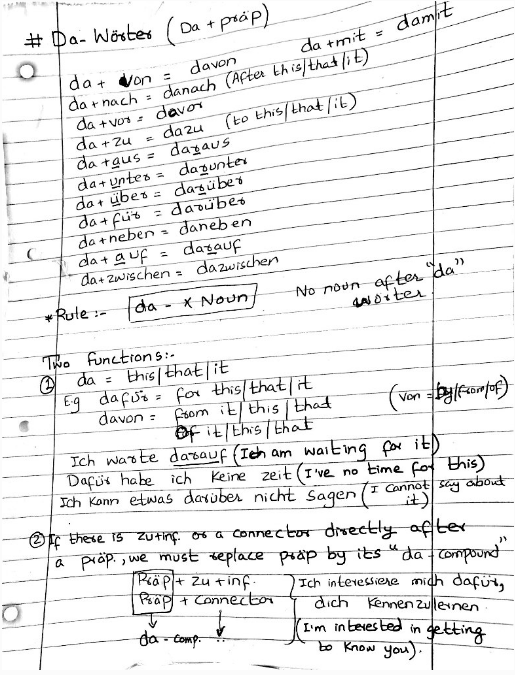 # Da-Wörter (Da + präp)
da + von = davon
da + mit = damit
da + nach = danach (After this/that/it)
da + vor = davor
da + zu = dazu (to this/that/it)
da + aus = daraus
da + unter = darunter
da + über = darüber
da + für = darüber
da + neben = daneben
da + auf = darauf
da + zwischen = dazwischen
* Rule :- da - x Noun
No noun after "da" wörter
Two functions:-
① da = this/that/it
Eg dafür = for this/that/it
davon = from it/this/that (von = by/from/of)
of it/this/that
Ich warte darauf (Ich am waiting for it)
Dafür habe ich keine zeit (I've no time for this)
Ich kann etwas darüber nicht sagen (I cannot say about it)
② If there is zu+inf. or a connector directly after
a präp., we must replace präp by its "da-compound"
Präp + zu + inf.
Präp + connector
da - comp.
Ich interessiere mich dafür,
dich kennenzulernen
(I'm interested in getting
to know you).